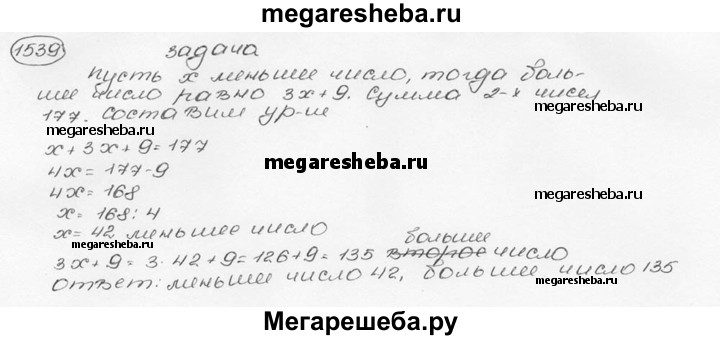 megaresheba.ru
1539 задача
пусть x меньшее число, тогда боль-
шее число равно 3x+9. Сумма 2-х чисел
177. составим ур-ие
megaresheba.ru
megaresheba.ru
x+3x+9=177
megaresheba.ru
4x=177-9
4x=168
megaresheba.ru
x=168:4
x=42 меньшее число
большее
megaresheba.ru
megaresheba.ru
3x+9=3·42+9=126+9=135 второе число
ответ: меньшее число 42, большее число 135
Мегарешеба.ру